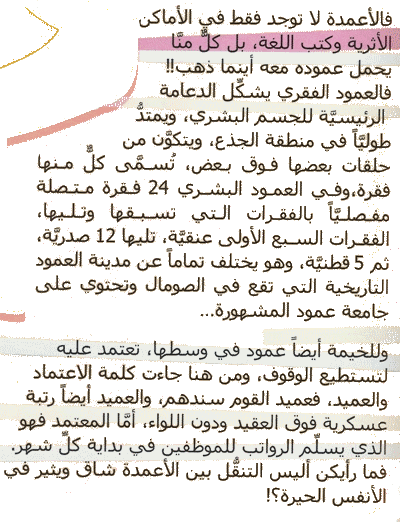 فالأعمدة لا توجد فقط في الأماكن
الأثرية وكتب اللغة، بل كلٌّ منَّا
يحمل عموده معه أينما ذهب!!
فالعمود الفقري يشكِّل الدعامة
الرئيسيَّة للجسم البشري، ويمتدُّ
طوليَّاً في منطقة الجذع، ويتكوَّن من
حلقات بعضها فوق بعض، تُسمَّى كلٌّ منها
فقرة،وفي العمود البشري 24 فقرة متصلة
مفصليَّاً بالفقرات التي تسبقها وتليها،
الفقرات السبع الأولى عنقيَّة، تليها 12 صدريَّة،
ثم 5 قطنيَّة، وهو يختلف تماماً عن مدينة العمود
التاريخية التي تقع في الصومال وتحتوي على
جامعة عمود المشهورة...
وللخيمة أيضاً عمود في وسطها، تعتمد عليه
لتستطيع الوقوف، ومن هنا جاءت كلمة الاعتماد
والعميد، فعميد القوم سندهم، والعميد أيضاً رتبة
عسكرية فوق العقيد ودون اللواء، أمَّا المعتمد فهو
الذي يسلِّم الرواتب للموظفين في بداية كلِّ شهر.
فما رأيكن أليس التنقُّل بين الأعمدة شاق ويثير في
الأنفس الحيرة؟!